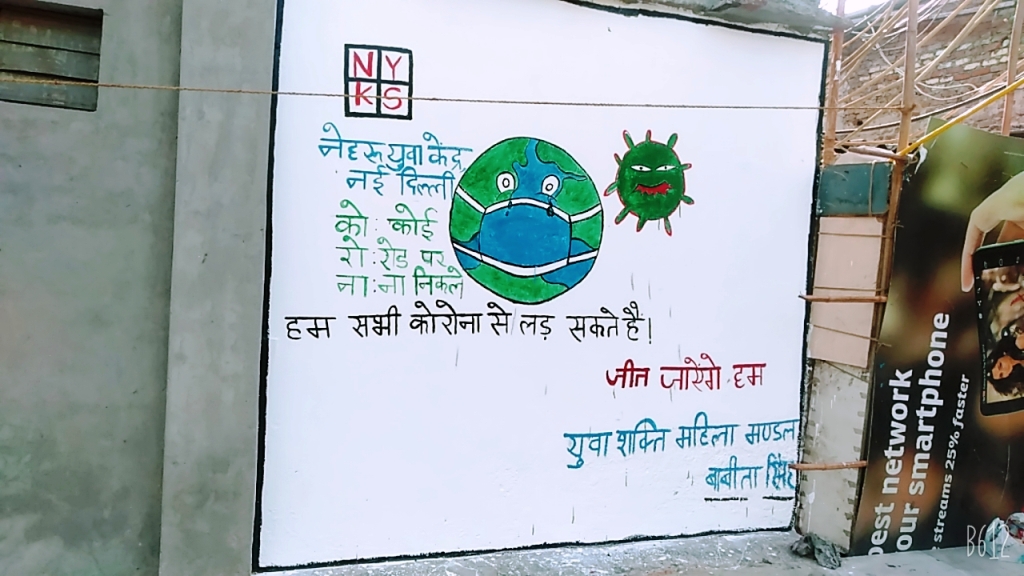 NY
KS
नेहरू युवा केंद्र
नई दिल्ली
को: कोई
रो: रोड पर
ना: ना निकले
हम सभी कोरोना से लड़ सकते है।
जीत जारेंगे हम
युवा शक्ति महिला मण्डल
बाबीता सिंह
best network
our smartphone
streams 25% faster
B612